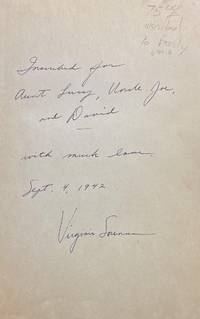 Inscribed for
Aunt Lucy, Uncle Joe,
and David
with much love
Sept. 4, 1942
Virginia